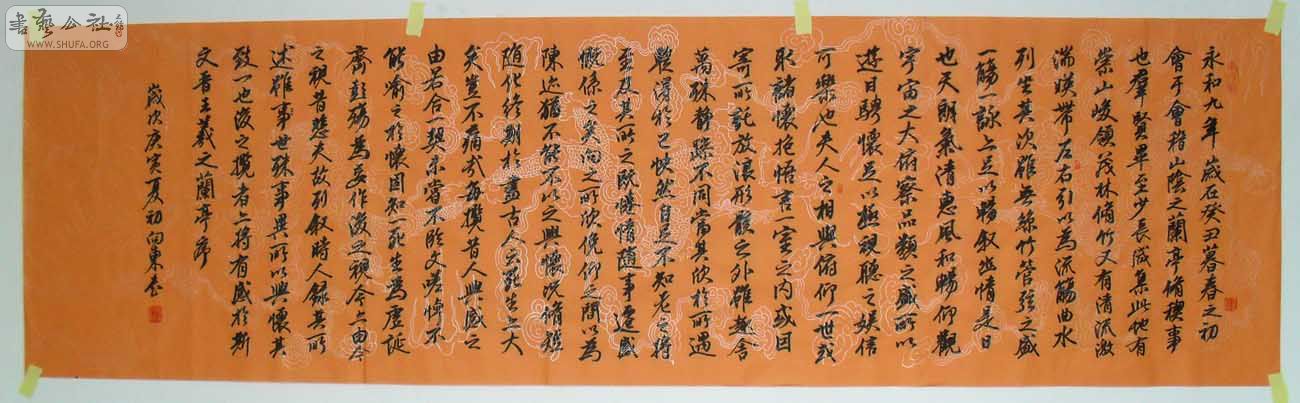 書藝公社
WWW.SHUFA.ORG
永和九年歲在癸丑暮春之初
會于會稽山陰之蘭亭脩禊事
也羣賢畢至少長咸集此地有
崇山峻領茂林脩竹又有清流激
湍暎帶左右引以為流觴曲水
列坐其次雖無絲竹管弦之盛
一觴一詠亦足以暢叙幽情是日
也天朗氣清惠風和暢仰觀
宇宙之大俯察品類之盛所以
遊目騁懷足以極視聽之娛信
可樂也夫人之相與俯仰一世或
取諸懷抱悟言一室之內或因
寄所託放浪形骸之外雖趣舍
萬殊靜躁不同當其欣於所遇
暫得於己快然自足不知老之將
至及其所之既惓情隨事遷感
慨係之矣向之所欣俛仰之間以為
陳迹猶不能不以之興懷況脩短
隨化終期於盡古人云死生亦大
矣豈不痛哉每攬昔人興感之
由若合一契未嘗不臨文嗟悼不
能喻之於懷固知一死生為虛誕
齊彭殤為妄作後之視今亦由今
之視昔悲夫故列叙時人錄其所
述雖事世殊事異所以興懷其
致一也後之攬者亦將有感於斯
文晉王羲之蘭亭序
歲次庚寅夏初向東書